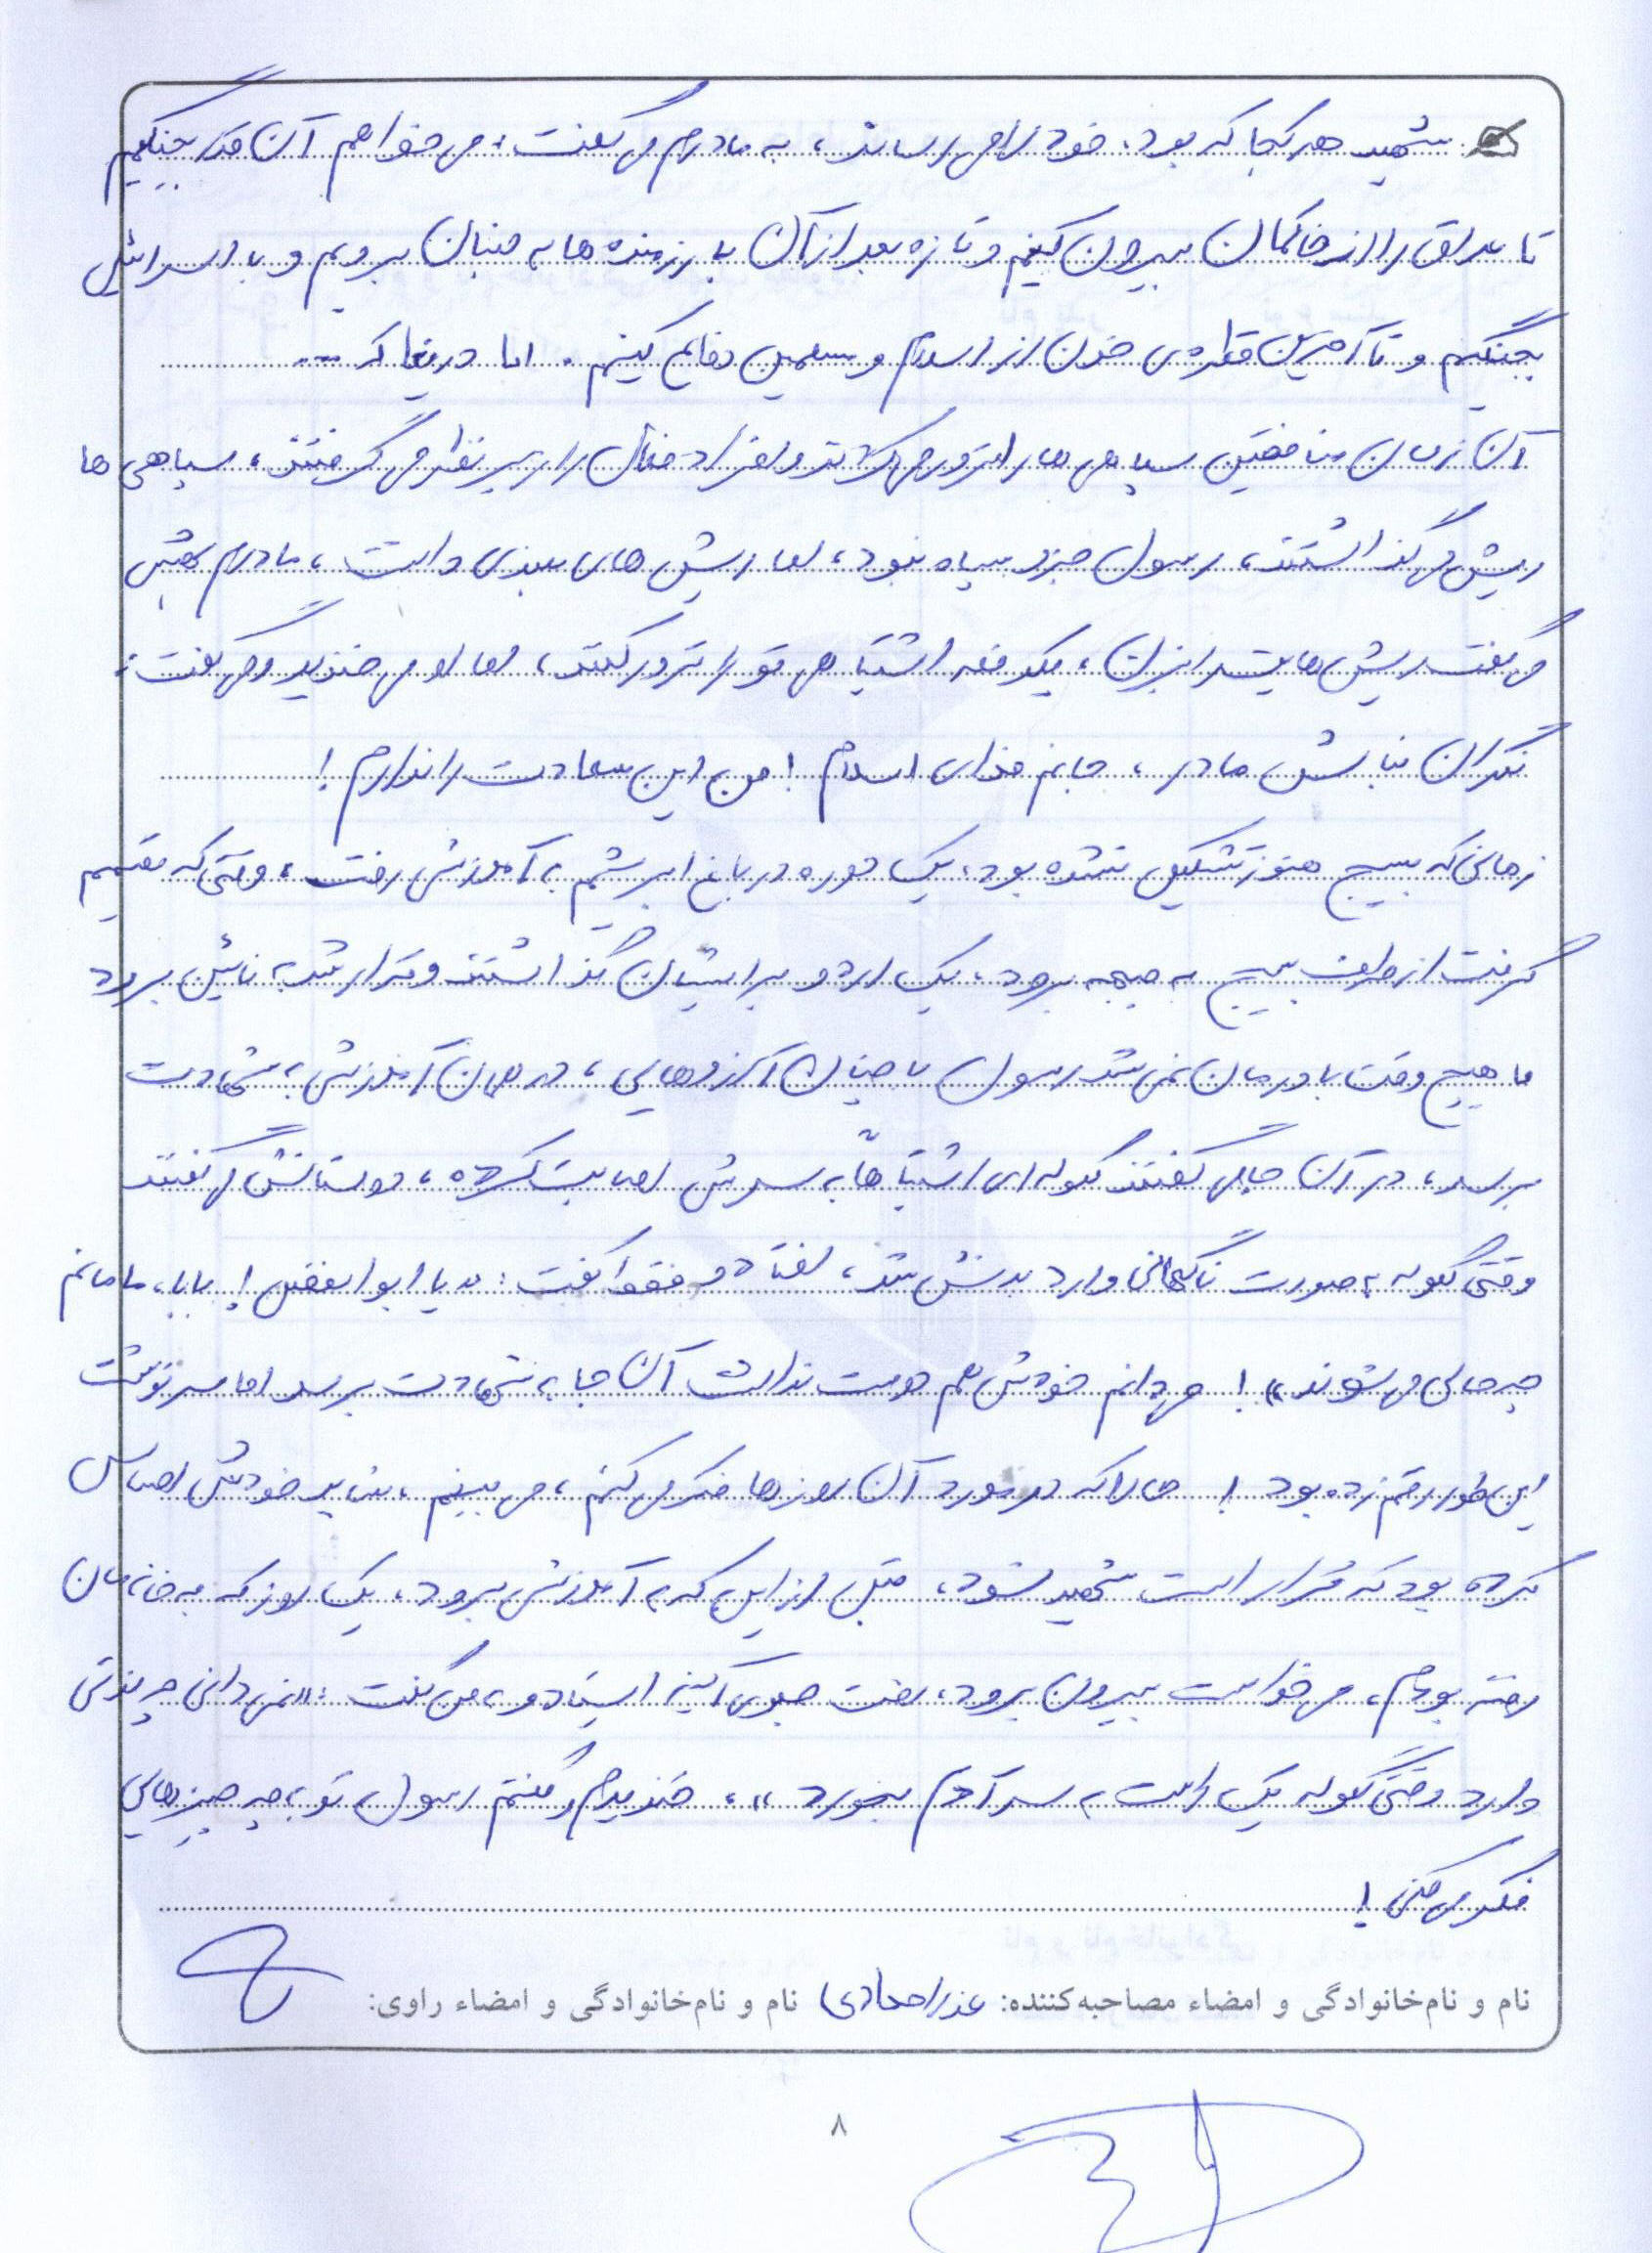 شهید هر کجا که بود، خود را می رساند، به مادرم می گفت: می خواهم آن قدر بجنگیم
تا عراق را از خاکمان بیرون کنیم و تازه بعد از آن با رزمنده ها به لبنان برویم و با اسرائیل
بجنگیم و تا آخرین قطره ی خون از اسلام و مسلمین دفاع کنیم. اما دریغا که ...
آن زمان منافقین سپاهی ها را ترور می کردند و افراد فعال را زیر نظر می گرفتند، سپاهی ها
ریش می گذاشتند، رسول جزء سپاه نبود، اما ریش های بلندی داشت، مادرم بهش
می گفت ریش هایت را بزن، یکدفعه اشتباهی تو را ترور نکنند، اما او می خندید و می گفت:
نگران نباش مادر، جانم فدای اسلام! من این سعادت را ندارم!
زمانی که بسیج هنوز تشکیل نشده بود، یک دوره در باغ ابریشم به آموزش رفت، وقتی که تصمیم
گرفت از طرف بسیج به جبهه برود، یک اردو برایشان گذاشتند و قرار شد به نائین برود
ما هیچ وقت باورمان نمی شد رسول با چنان آرزوهایی، در همان آموزش به شهادت
برسد، در آن جا می گفتند گلوله ای اشتباهاً به سرش اصابت کرده، دوستانش می گفتند
وقتی گلوله به صورت ناگهانی وارد بدنش شد، افتاد و فقط گفت: «یا ابوالفضل! بابا، مامانم
چه حالی می شوند»! می دانم خودش هم دوست نداشت آن جا به شهادت برسد اما سرنوشت
این طور رقم زده بود! حالا که در مورد آن روزها فکر می کنم، می بینم، شاید خودش احساس
کرده بود که قرار است شهید شود، قبل از این که به آموزش برود، یک روز که به خانه مان
رفته بودم، می خواست بیرون برود، رفت جلوی آینه ایستاد و به من گفت: «نمی دانی چه لذتی
دارد وقتی گلوله یک راست به سر آدم بخورد»، خندیدم و گفتم رسول تو به چه چیزهایی
فکر می کنی!
نام و نام‌خانوادگی و امضاء مصاحبه‌کننده: عذرا عمادی نام و نام‌خانوادگی و امضاء راوی:
۸